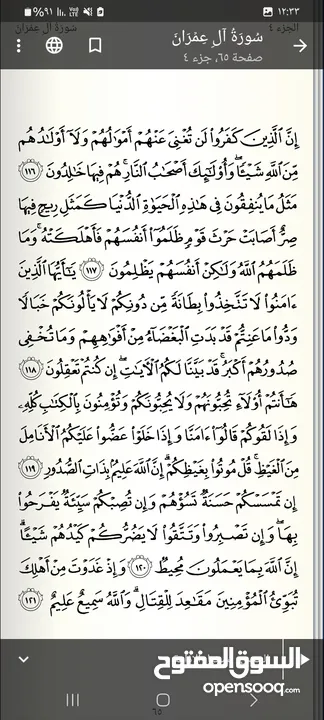 ١٢:٣٣
٩١%
سُورَةُ آلِ عِمْرَانَ
الجزء ٤
سُورَةُ آلِ عِمْرَانَ
صفحة ٦٥، جزء ٤
إِنَّ ٱلَّذِينَ كَفَرُوا۟ لَن تُغْنِىَ عَنْهُمْ أَمْوَٰلُهُمْ وَلَآ أَوْلَٰدُهُم
مِّنَ ٱللَّهِ شَيْـًٔا ۖ وَأُو۟لَٰٓئِكَ أَصْحَٰبُ ٱلنَّارِ ۚ هُمْ فِيهَا خَٰلِدُونَ ١١٦
مَثَلُ مَا يُنفِقُونَ فِى هَٰذِهِ ٱلْحَيَوٰةِ ٱلدُّنْيَا كَمَثَلِ رِيحٍ فِيهَا
صِرٌّ أَصَابَتْ حَرْثَ قَوْمٍ ظَلَمُوٓا۟ أَنفُسَهُمْ فَأَهْلَكَتْهُ ۚ وَمَا
ظَلَمَهُمُ ٱللَّهُ وَلَٰكِنْ أَنفُسَهُمْ يَظْلِمُونَ ١١٧ يَٰٓأَيُّهَا ٱلَّذِينَ
ءَامَنُوا۟ لَا تَتَّخِذُوا۟ بِطَانَةً مِّن دُونِكُمْ لَا يَأْلُونَكُمْ خَبَالًا
وَدُّوا۟ مَا عَنِتُّمْ قَدْ بَدَتِ ٱلْبَغْضَآءُ مِنْ أَفْوَٰهِهِمْ وَمَا تُخْفِى
صُدُورُهُمْ أَكْبَرُ ۚ قَدْ بَيَّنَّا لَكُمُ ٱلْـَٔايَٰتِ ۖ إِن كُنتُمْ تَعْقِلُونَ ١١٨
هَٰٓأَنتُمْ أُو۟لَآءِ تُحِبُّونَهُمْ وَلَا يُحِبُّونَكُمْ وَتُؤْمِنُونَ بِٱلْكِتَٰبِ كُلِّهِۦ
وَإِذَا لَقُوكُمْ قَالُوٓا۟ ءَامَنَّا وَإِذَا خَلَوْا۟ عَضُّوا۟ عَلَيْكُمُ ٱلْأَنَامِلَ
مِنَ ٱلْغَيْظِ ۚ قُلْ مُوتُوا۟ بِغَيْظِكُمْ ۗ إِنَّ ٱللَّهَ عَلِيمٌۢ بِذَاتِ ٱلصُّدُورِ ١١٩
إِن تَمْسَسْكُمْ حَسَنَةٌ تَسُؤْهُمْ وَإِن تُصِبْكُمْ سَيِّئَةٌ يَفْرَحُوا۟
بِهَا ۖ وَإِن تَصْبِرُوا۟ وَتَتَّقُوا۟ لَا يَضُرُّكُمْ كَيْدُهُمْ شَيْـًٔا ۗ
إِنَّ ٱللَّهَ بِمَا يَعْمَلُونَ مُحِيطٌ ١٢٠ وَإِذْ غَدَوْتَ مِنْ أَهْلِكَ
تُبَوِّئُ ٱلْمُؤْمِنِينَ مَقَٰعِدَ لِلْقِتَالِ ۗ وَٱللَّهُ سَمِيعٌ عَلِيمٌ ١٢١
السوق المفتوح
opensooq.com
٦٥